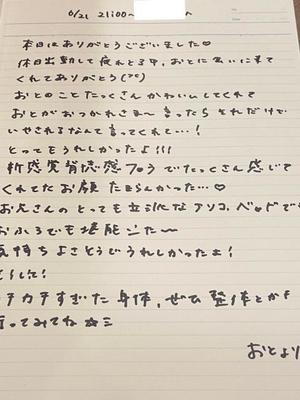 6/21 21:00〜
本日はありがとうございました♡
休日出勤して疲れてる中、おとに会いに来て
くれてありがとう(^o^)
おとのことたっくさんかわいいしてくれて
おとがおつかれさま〜言ったらそれだけで
いやされるなんて言ってくれて…!
とってもうれしかったよ!!!
新感覚背徳感フロうでたっくさん感じて
くれてたお顔たまらんかった…♡
お兄さんのとっても立派なアソコ、ベッドで
おふろでも堪能ジた〜
気持ちよさそうでうれしかったよ!
カチカチすぎた身体、ぜひ整体とか
行ってみてね☆ミ
おとより